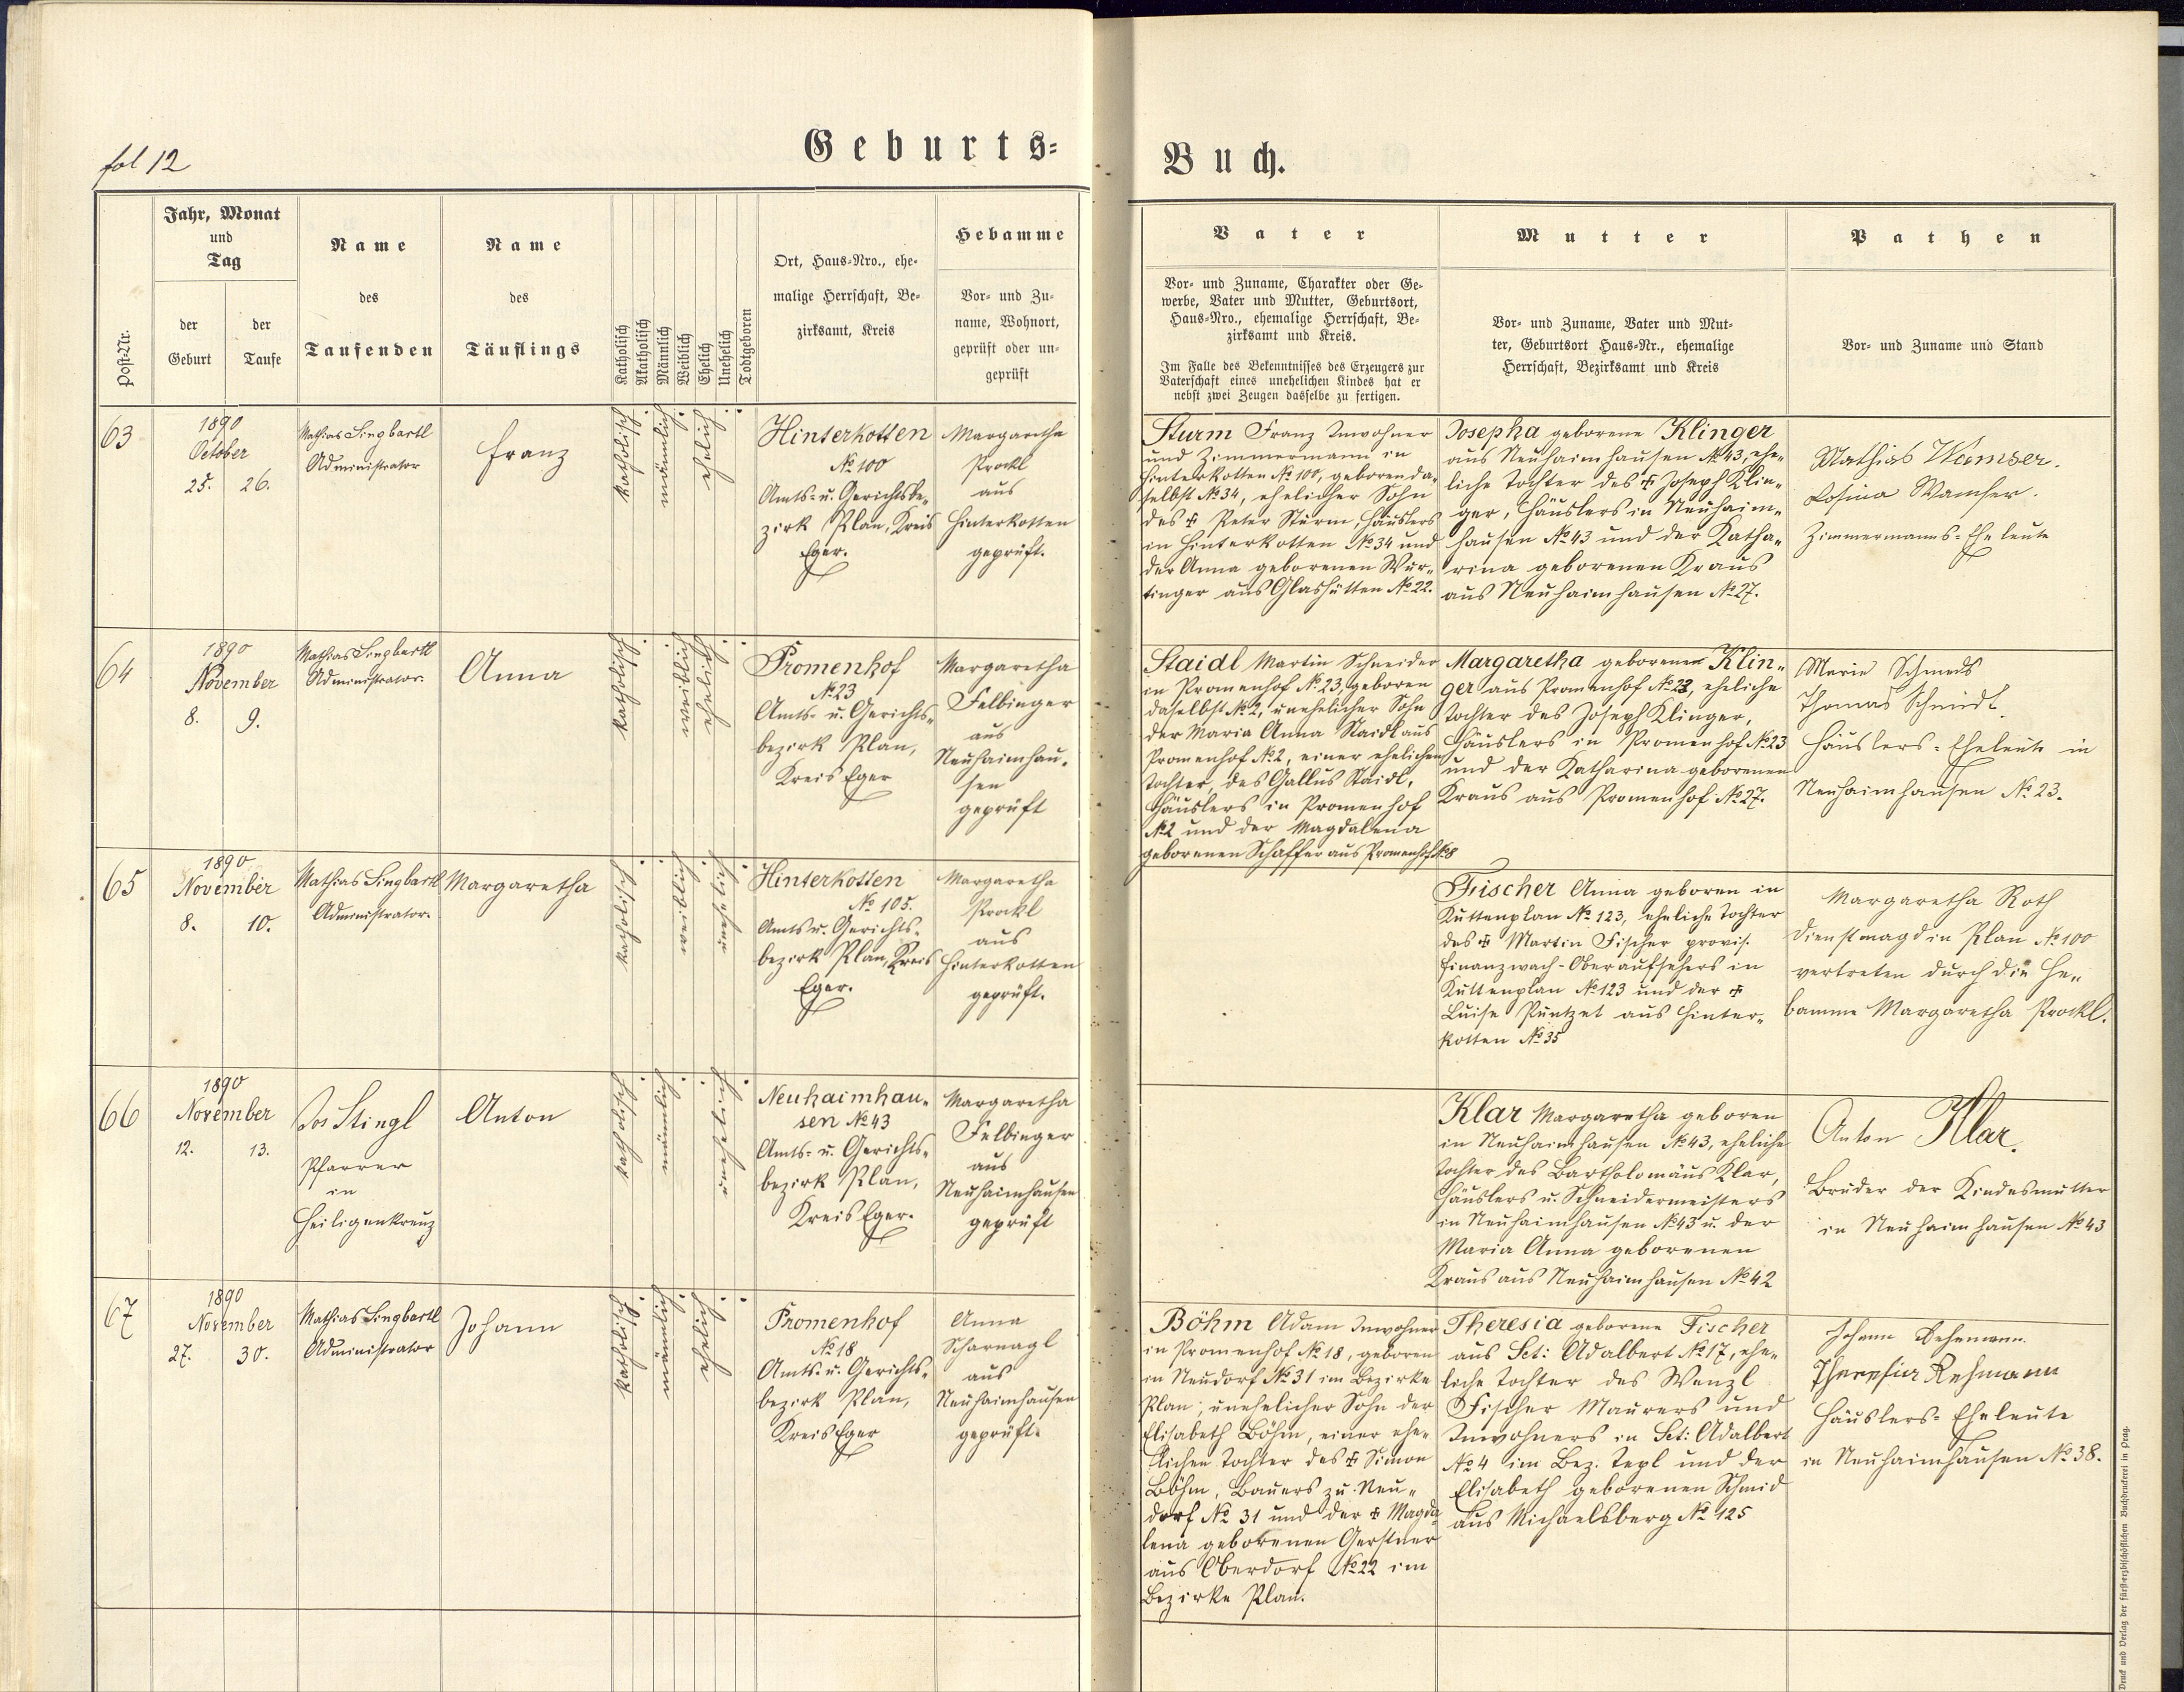 fol 12
Geburts-
Buch.
Post-Nr.
Jahr, Monat
und
Tag
der
Geburt
der
Taufe
Name
des
Taufenden
Name
des
Täuflings
Katholisch
Akatholisch
Männlich
Weiblich
Ehelich
Unehelich
Todtgeboren
Ort, Haus-Nro., ehe-
malige Herrschaft, Be-
zirksamt, Kreis
Hebamme
Vor- und Zu-
name, Wohnort,
geprüft oder un-
geprüft
Vater
Vor- und Zuname, Charakter oder Ge-
werbe, Vater und Mutter, Geburtsort,
Haus-Nro., ehemalige Herrschaft, Be-
zirksamt und Kreis.
Im Falle des Bekenntnisses des Erzeugers zur
Vaterschaft eines unehelichen Kindes hat er
nebst zwei Zeugen dasselbe zu fertigen.
Mutter
Vor- und Zuname, Vater und Mut-
ter, Geburtsort Haus-Nr., ehemalige
Herrschaft, Bezirksamt und Kreis
Pathen
Vor- und Zuname und Stand
63
1890
October
25. 26.
Mathias Singbartl
Administrator
Franz
katholisch
männlich
ehelich
Hinterkotten
No 100
Amts- u. Gerichtsbe-
zirk Plan, Kreis
Eger.
Margaretha
Prockl
aus
Hinterkotten
geprüft.
Sturm Franz Inwohner
und Zimmermann in
Hinterkotten No 100, geboren da-
selbst No 34, ehelicher Sohn
des ✠ Peter Sturm, Häuslers
in Hinterkotten No 34 und
der Anna geborenen Wur-
tinger aus Glashütten No 22.
Josepha geborene Klinger
aus Neuhaimhausen No 43, ehe-
liche Tochter des ✠ Joseph Klin-
ger, Häuslers in Neuhaim-
hausen No 43 und der Katha-
rina geborenen Kraus
aus Neuhaimhausen No 27.
Mathias Wamser.
Rosina Wamser.
Zimmermanns-Eheleute
64
1890
November
8. 9.
Mathias Singbartl
Administrator.
Anna
katholisch
weiblich
ehelich
Promenhof
No 23
Amts- u. Gerichts-
bezirk Plan,
Kreis Eger
Margaretha
Felbinger
aus
Neuhaimhau-
sen
geprüft
Staidl Martin Schneider
in Promenhof No 23, geboren
daselbst No 2, unehelicher Sohn
der Maria Anna Staidl aus
Promenhof No 2, einer ehelichen
Tochter, des Gallus Staidl,
Häuslers in Promenhof
No 2 und der Magdalena
geborenen Schaffer aus Promenhof No 8
Margaretha geborenen Klin-
ger aus Promenhof No 23, eheliche
Tochter des Joseph Klinger,
Häuslers in Promenhof No 23
und der Katharina geborenen
Kraus aus Promenhof No 27.
Marie
Thomas Schmidt.
Häuslers-Eheleute in
Neuhaimhausen No 23.
65
1890
November
8. 10.
Mathias Singbartl
Administrator.
Margaretha
katholisch
weiblich
unehelich
Hinterkotten
No 105.
Amts u. Gerichts-
bezirk Plan, Kreis
Eger.
Margaretha
Prockl
aus
Hinterkotten
geprüft.
Fischer Anna geboren in
Kuttenplan No 123, eheliche Tochter
des ✠ Martin Fischer provis.
Finanzwach-Oberaufsehers in
Kuttenplan No 123 und der ✠
Luise Puntzet aus Hinter-
kotten No 35
Margaretha Roth
Dienstmagd in Plan No 100
vertreten durch die He-
bamme Margaretha Prockl.
66
1890
November
12. 13.
Jos Stingl
Pfarrer
in
Heiligenkreuz
Anton
katholisch
männlich
unehelich
Neuhaimhau-
sen No 43
Amts- u. Gerichts-
bezirk Plan,
Kreis Eger.
Margaretha
Felbinger
aus
Neuhaimhausen
geprüft
Klar Margaretha geboren
in Neuhaimhausen No 43, eheliche
Tochter des Bartholomäus Klar,
Häuslers u. Schneidermeisters
in Neuhaimhausen No 43 u. der
Maria Anna geborenen
Kraus aus Neuhaimhausen No 42
Anton Klar.
Bruder der Kindesmutter
in Neuhaimhausen No 43
67
1890
November
27. 30.
Mathias Singbartl
Administrator
Johann
katholisch
männlich
ehelich
Promenhof
No 18
Amts- u. Gerichts-
bezirk Plan,
Kreis Eger
Anna
Scharnagl
aus
Neuhaimhausen
geprüft.
Böhm Adam Inwohner
in Promenhof No 18, geboren
in Neudorf No 31 im Bezirke
Plan, unehelicher Sohn der
Elisabeth Böhm, einer ehe-
lichen Tochter des ✠ Simon
Böhm, Bauers zu Neu-
dorf No 31 und der ✠ Magda
lena geborenen Gerstner
aus Oberdorf No 22 im
Bezirke Plan.
Theresia geborene Fischer
aus Sct: Adalbert No 17, ehe-
liche Tochter des Wenzl
Fischer Maurers und
Inwohners in Sct: Adalbert
No 4 im Bez. Tepl und der
Elisabeth geborenen Schmid
aus Michaelsberg No 125
Johann Rehmann.
Theresia Rehmann
Häuslers-Eheleute
in Neuhaimhausen No 38.
Druck und Verlag der fürsterzbischöflichen Buchdruckerei in Prag.